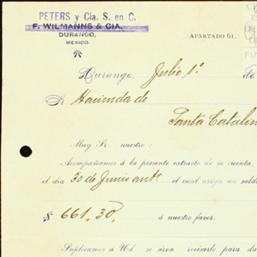 PETERS y Cia. S. en C.
F. WILMANNS & CIA.
DURANGO,
MEXICO.
APARTADO 61.
Durango, Julio 1º de
Sr. Hacienda de
Santa Catalin
Muy Sr. nuestro:
Acompañamos á la presente extracto de su cuenta,
el dia 30 de Junio antº el cual arroja un sald
$ 661.30. á nuestro favor.
Suplicamos á Ud. se sirva revisarlo para da